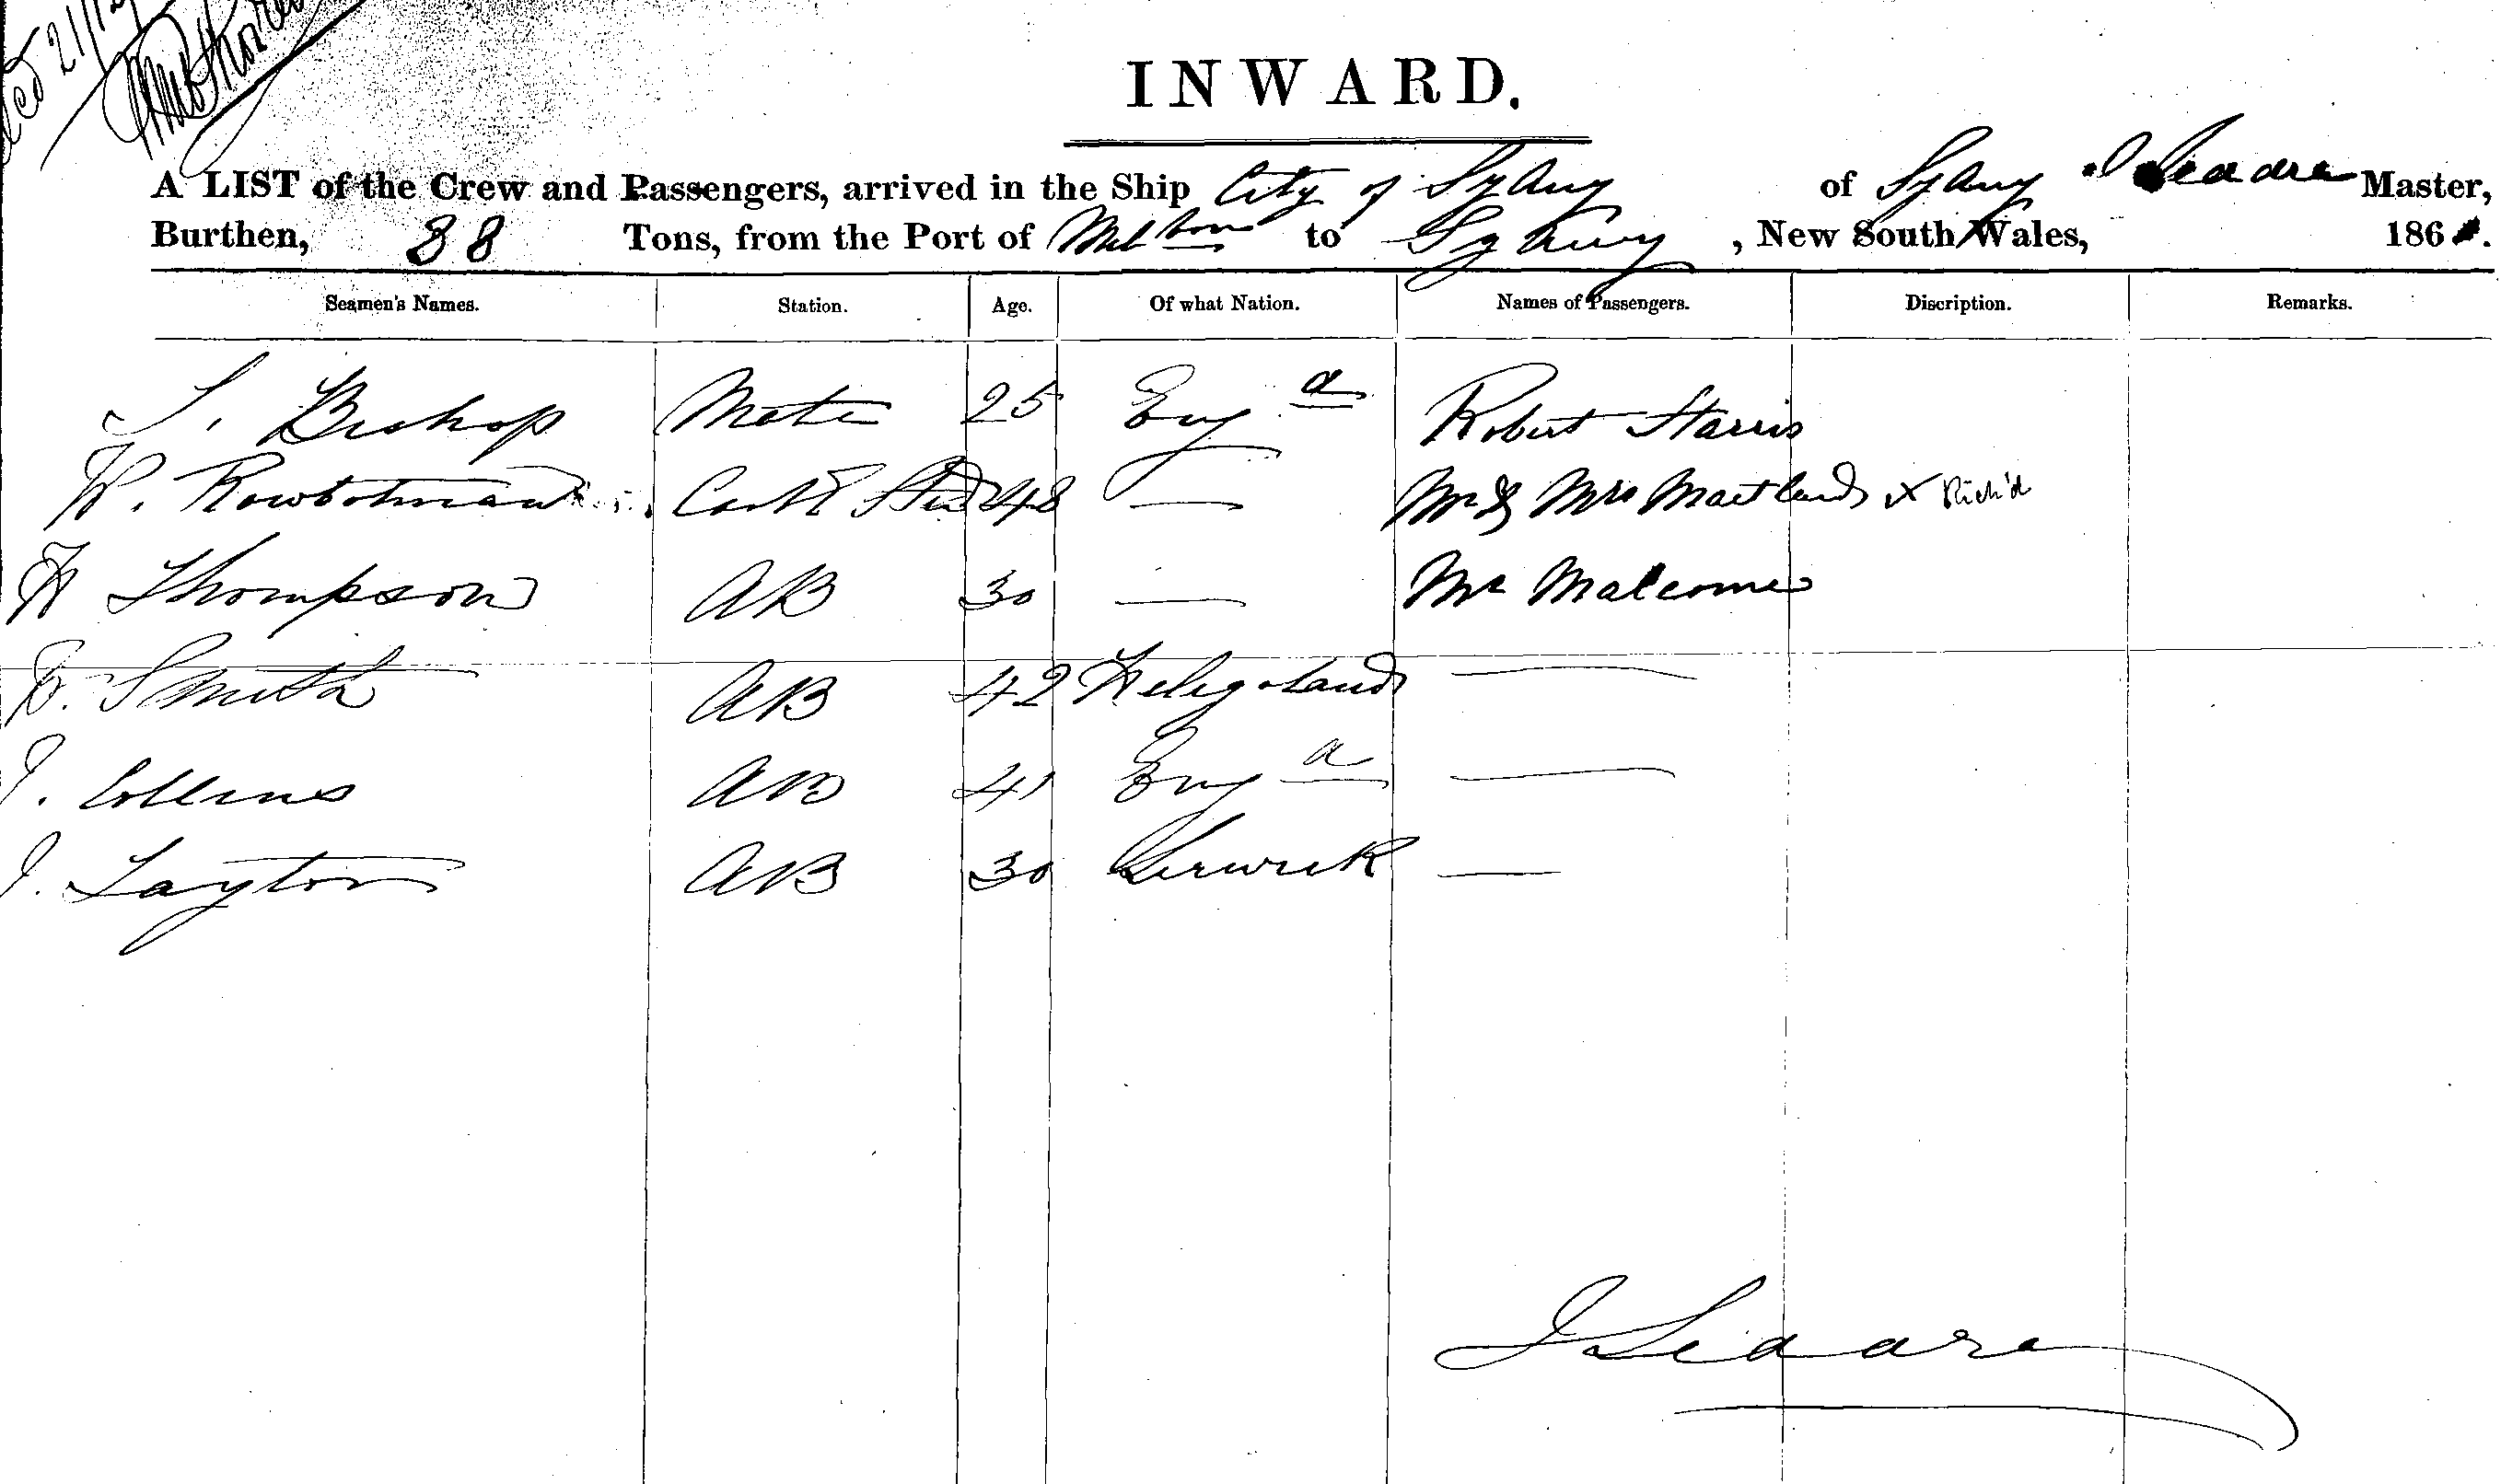 INWARD.
A LIST of the Crew and Passengers, arrived in the Ship City of Sydney of Sydney J Seadre Master,
Burthen, 38 Tons, from the Port of Melbne to Sydney, New South Wales, 186
Seamen's Names. Station. Age. Of what Nation. Names of Passengers. Discription. Remarks.
S. Bishop Mate 25 Eng d Robert Harris
W. Rowbotham Cook & Std 48 — Mr & Mrs Maitland x Rich'd
H Thompson AB 30 — Mr Malcome
Smith AB 42 Heligoland —
J. Collins AB 41 Eng d —
J. Layton AB 30 Lerwick —